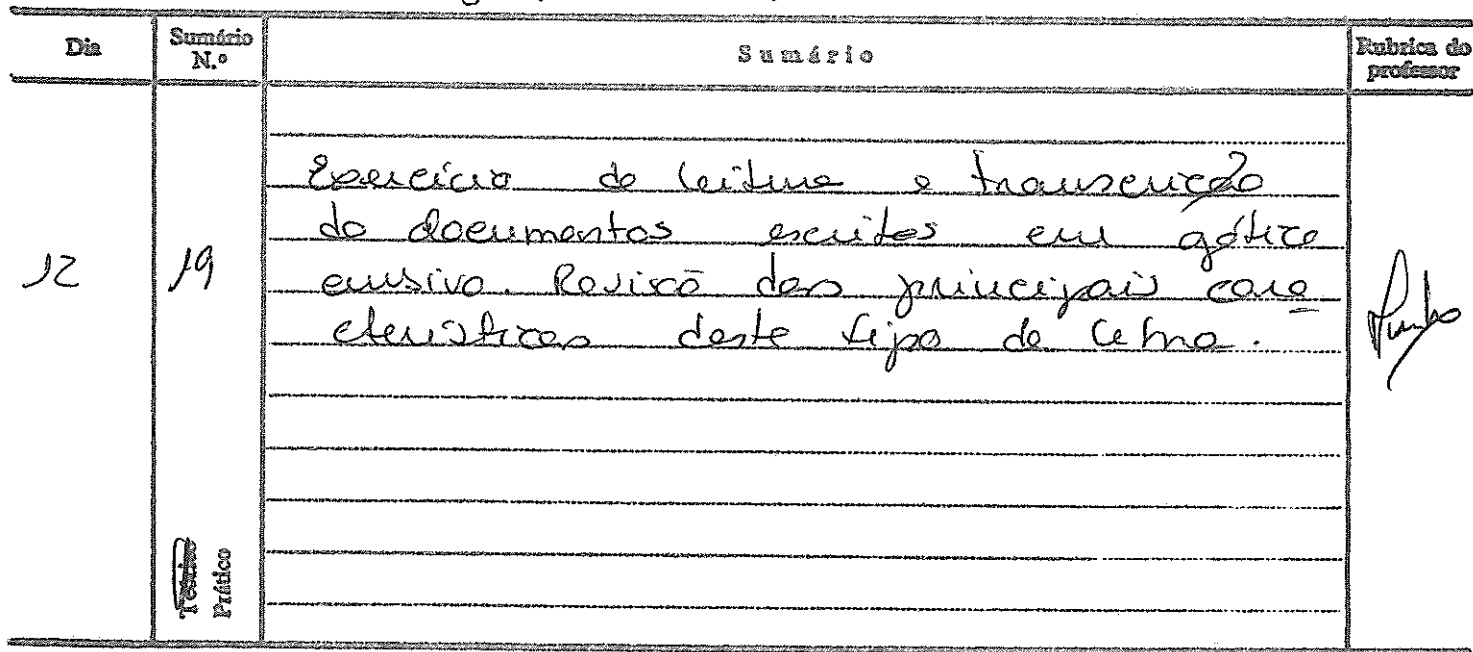 Dia
Sumário N.º
Sumário
Rubrica do professor
12
19
Exercício de leitura e transcrição
de documentos escritos em gótico
cursivo. Revisão das principais cara
cterísticas deste tipo de letra.
Teórico
Prático